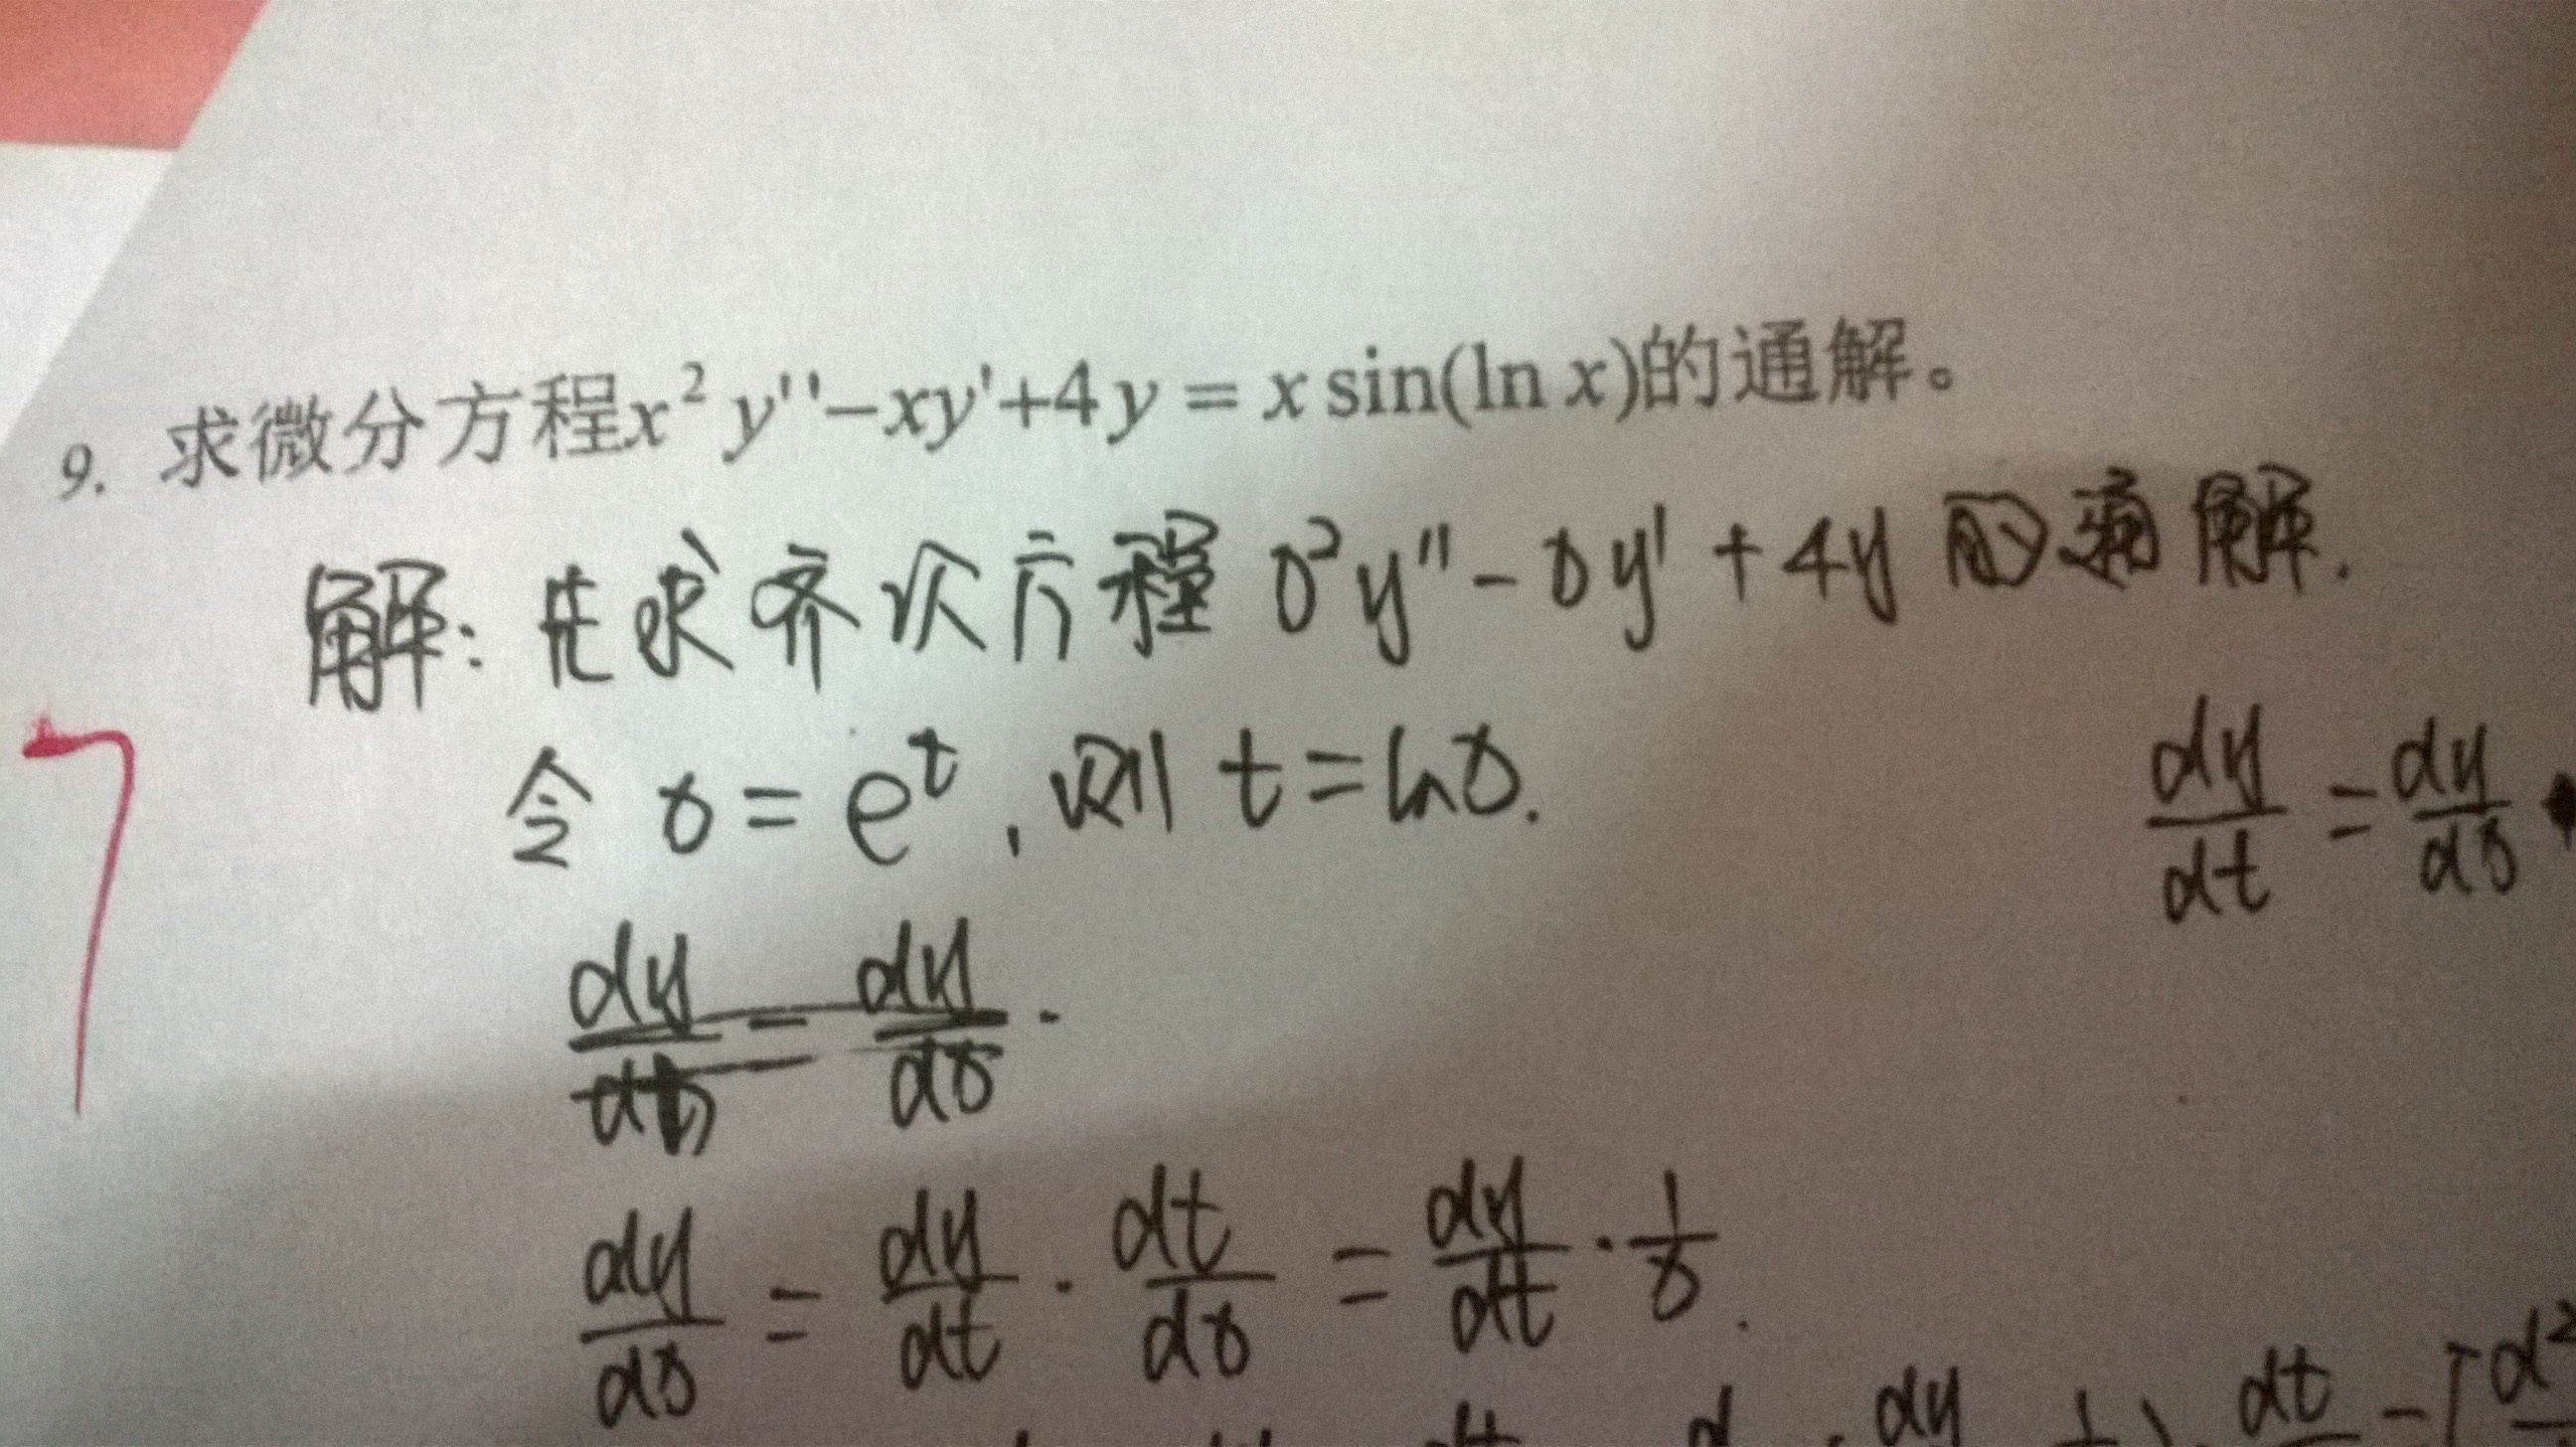 9. 求微分方程x² y''-xy'+4y = x sin(ln x)的通解。
解: 先求齐次方程 x²y'' - xy' + 4y 的通解.
令 x = eᵗ, 则 t = ln x.
dy/dt = dy/dx ·
dy/dx ·
7
dy/dx = dy/dt · dt/dx = dy/dt · 1/x .
dy dt